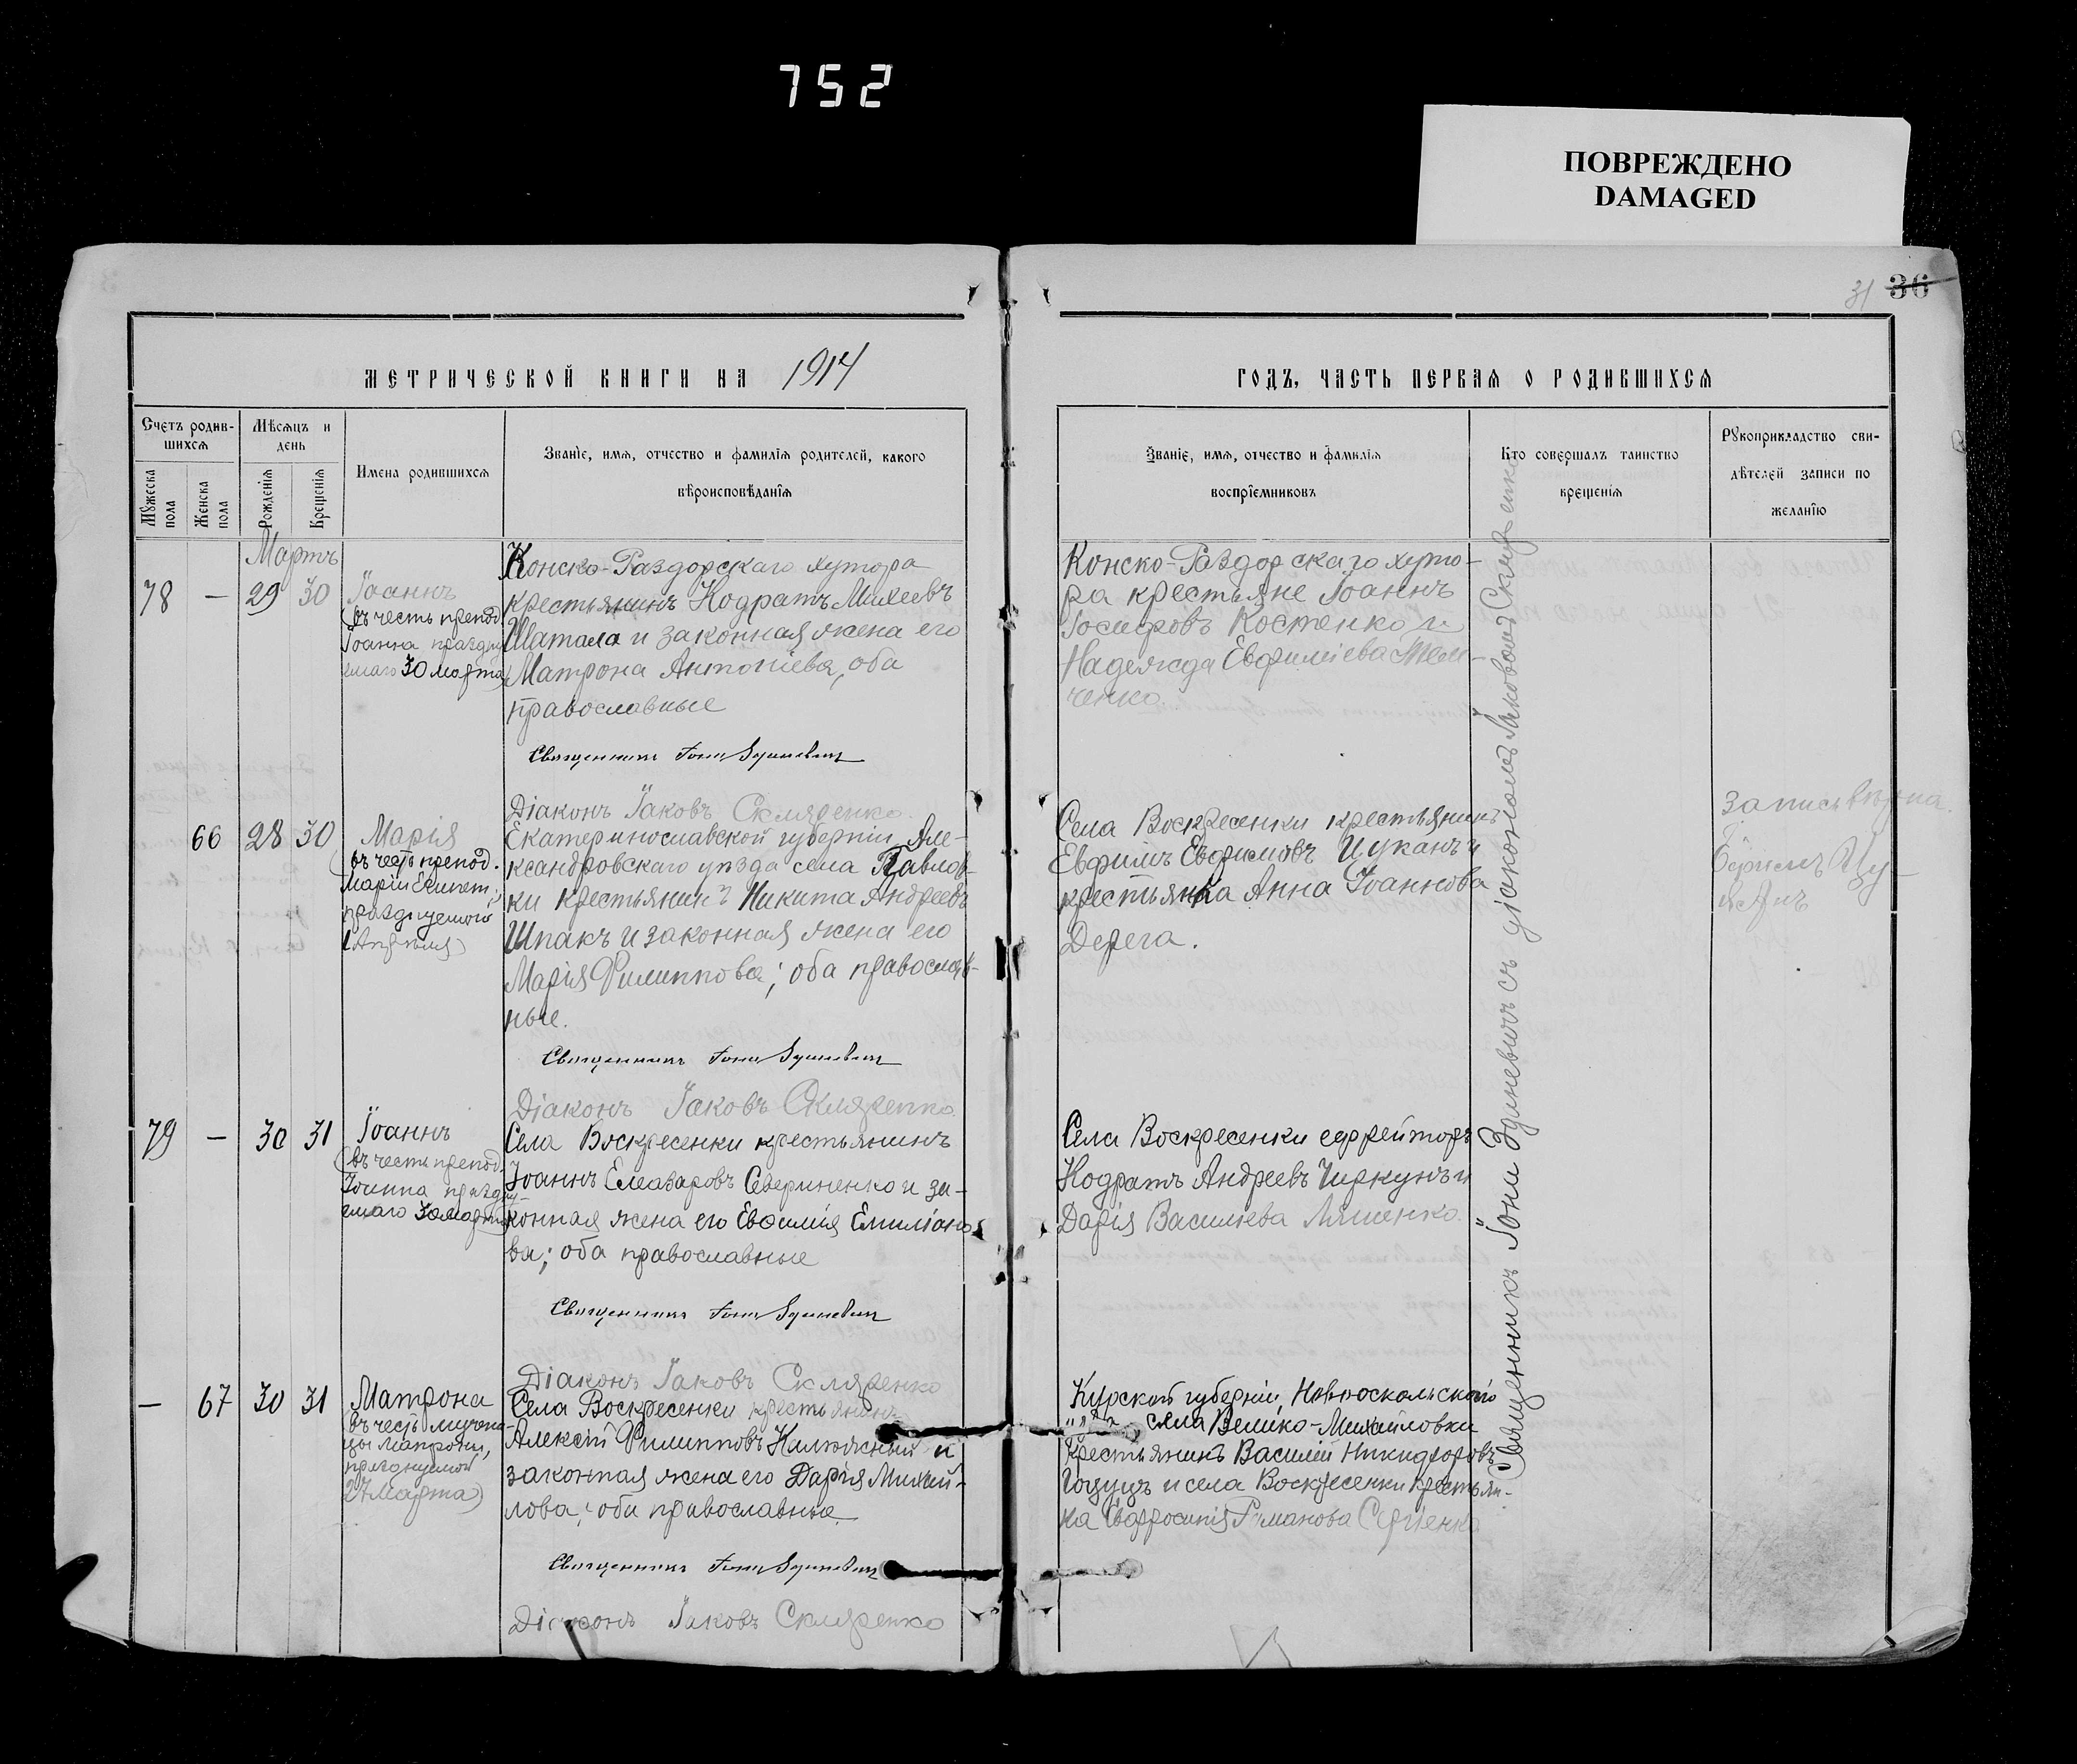 752
ПОВРЕЖДЕНО
DAMAGED
31 36
МЕТРИЧЕСКОЙ КНИГИ НА 1914
Счетъ родив-
шихся
Мѣсяцъ и
день
Мужеска
пола
Женска
пола
Рожденія
Крещенія
Имена родившихся
Званіе, имя, отчество и фамилія родителей, какого
вѣроисповѣданія
Мартъ
78 — 29 30
Іоаннъ
(въ честь препод.
Іоанна праздну
емаго 30 марта)
Конско-Раздорскаго хутора
крестьянинъ Кодратъ Михеевъ
Шатала и законная жена его
Матрона Антоніева, оба
православные
Священникъ Іона
Діаконъ Іаковъ Скляренко.
66 28 30
Марія
(въ честь препод.
Маріи Египет.,
празднуемой
1 Апрѣля)
Екатеринославской губерніи, Але-
ксандровскаго уѣзда села Павлов-
ки крестьянинъ Никита Андреевъ
Шпакъ и законная жена его
Марія Филиппова; оба православ-
ные.
Священникъ Іона
Діаконъ Іаковъ Скляренко.
79 — 30 31
Іоаннъ
(въ честь препод.
Іоанна праздну-
емаго 30 марта)
Села Воскресенки крестьянинъ
Іоаннъ Елеазаровъ Севериненко и за-
конная жена его Евфимія Емиліано-
ва; оба православные
Священникъ Іона
Діаконъ Іаковъ Скляренко
— 67 30 31
Матрона
(въ честь мучени-
цы Матроны,
празднуемой
27 Марта)
Села Воскресенки крестьянинъ
Алексій Филипповъ Калюжный и
законная жена его Дарія Михай-
лова; оба православные
Священникъ Іона
Діаконъ Іаковъ Скляренко
ГОДЪ, ЧАСТЬ ПЕРВАЯ О РОДИВШИХСЯ
Званіе, имя, отчество и фамилія
воспріемниковъ
Кто совершалъ таинство
крещенія
Рукоприкладство сви-
дѣтелей записи по
желанію
Конско-Раздорскаго хуто-
ра крестьяне Іоаннъ
Іосифовъ Костенко и
Надежда Евфиміева Тем-
ченко.
Села Воскресенки крестьянинъ
Евфимъ Евфимовъ Цуканъ и
крестьянка Анна Іоаннова
Дерега.
Запись вѣрна.
Цу-
канъ
Села Воскресенки ефрейторъ
Кодратъ Андреевъ Чиркунъ и
Дарія Васильева Ляшенко.
Курской губерніи, Новооскольскаго
села Велико-Михайловки
крестьянинъ Василій Никифоровъ
и села Воскресенки крестьян-
ка Евфросинія Романова Сергіенко
Священникъ Іона Зданевичъ съ діакономъ Іаковомъ Скляренко